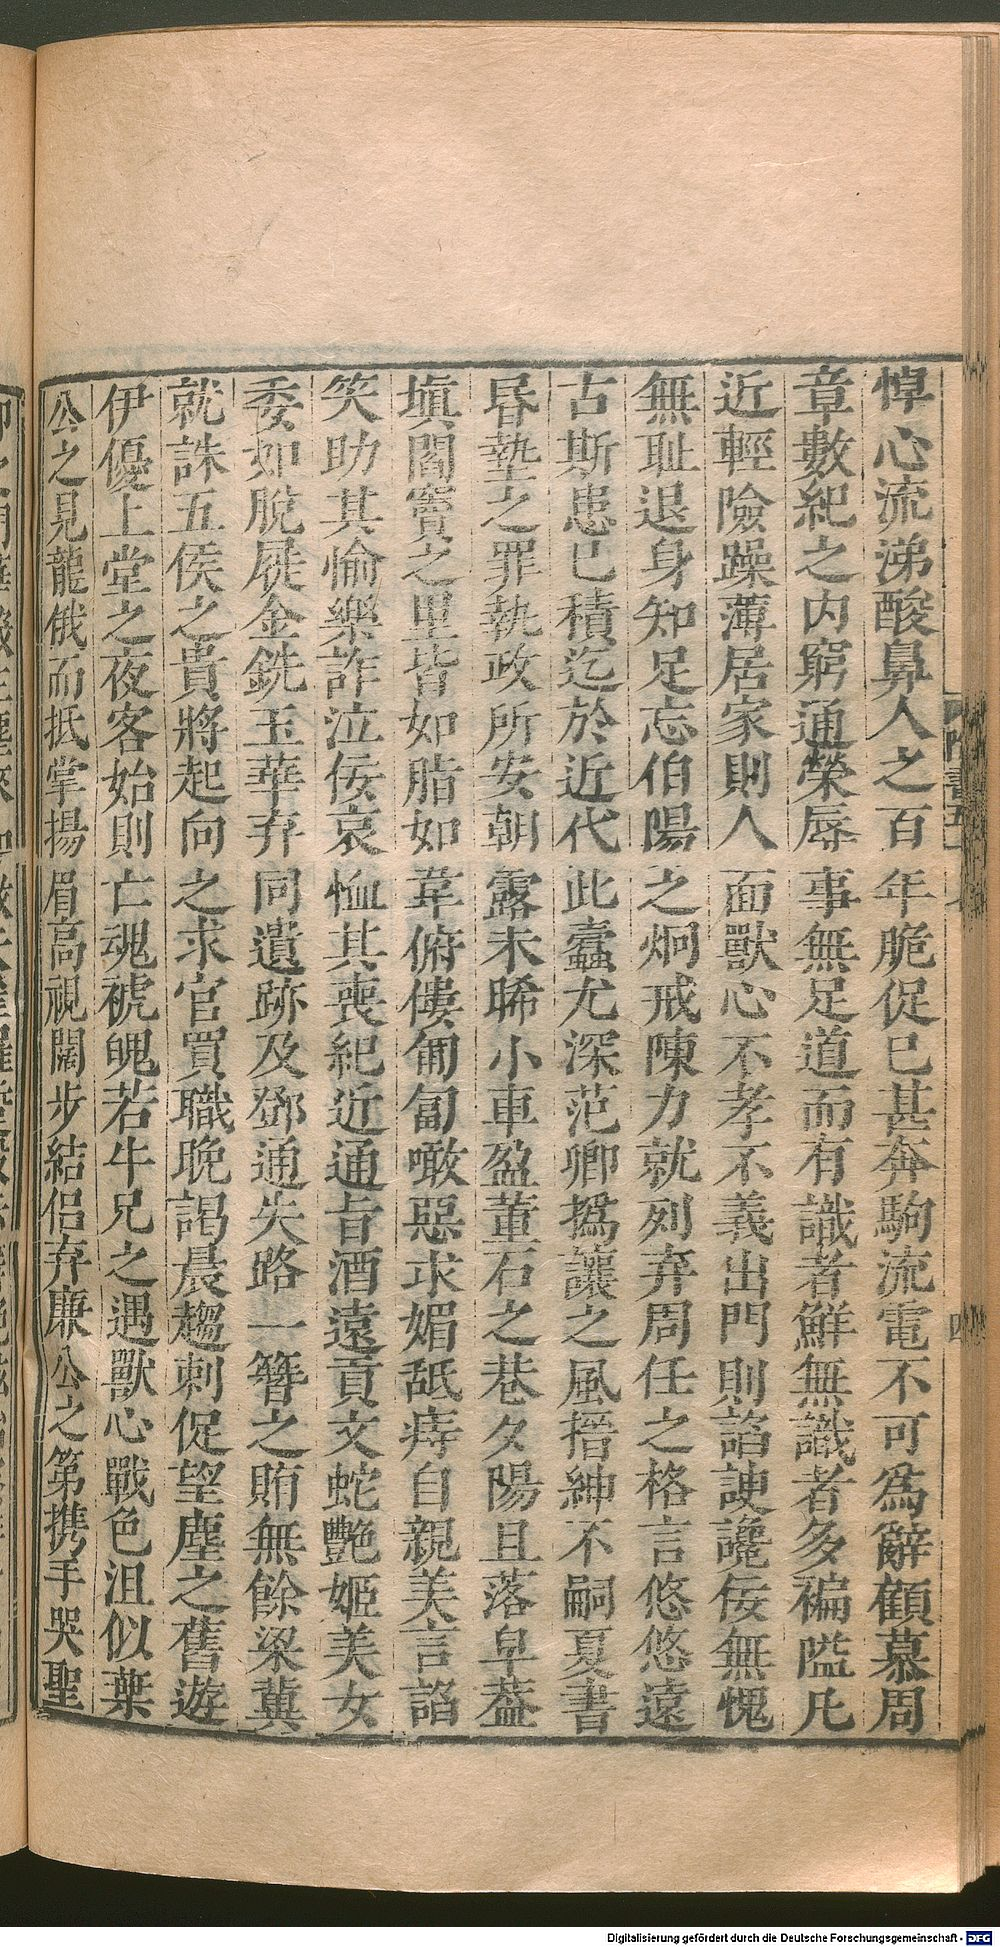 悼心流涕酸鼻人之百年脆促已甚奔駒流電不可為辭顧慕周
章數紀之內窮通榮辱事無足道而有識者鮮無識者多褊隘凡
近輕險躁薄居家則人面獸心不孝不義出門則諂諛讒佞無愧
無恥退身知足忘伯陽之炯戒陳力就列弃周任之格言悠悠遠
古斯患已積迄於近代此蠹尤深范卿撝讓之風搢紳不嗣夏書
昏墊之罪執政所安朝露未晞小車盈董石之巷夕陽且落皁蓋
填閻竇之里皆如脂如韋俯僂匍匐噉惡求媚舐痔自親美言諂
笑助其愉樂詐泣佞哀恤其喪紀近通旨酒遠貢文蛇艷姬美女
委如脫屣金銑玉華弃同遺跡及鄧通失路一簪之賄無餘梁冀
就誅五侯之貴將起向之求官買職晚謁晨趨刺促望塵之舊遊
伊優上堂之夜客始則亡魂褫魄若牛兄之遇獸心戰色沮似葉
公之見龍俄而抵掌揚眉高視闊步結侶弃廉公之第携手哭聖
四
Digitalisierung gefördert durch die Deutsche Forschungsgemeinschaft - DFG